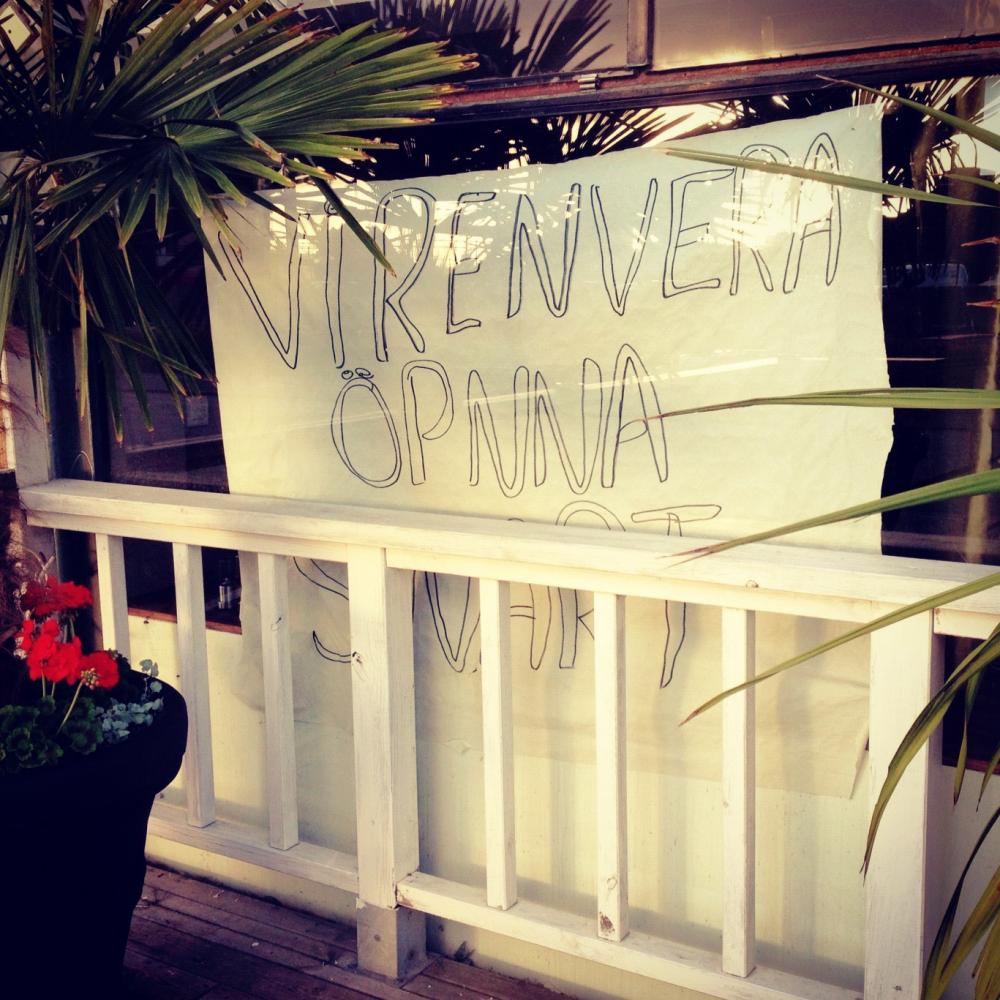 VI RENVERA
ÖPNNA
SNART